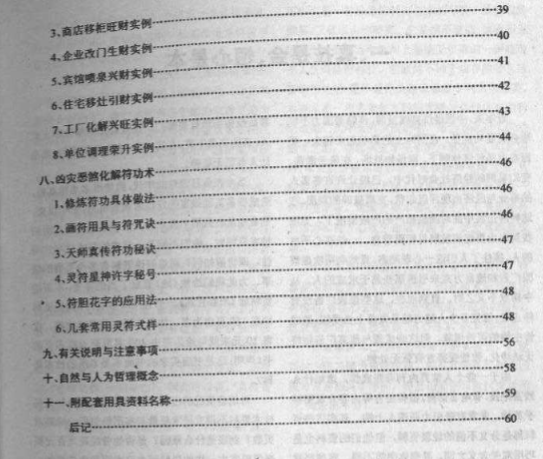 3、商店移柜旺财实例 39
4、企业改门生财实例 40
5、宾馆喷泉兴财实例 41
6、住宅移灶引财实例 42
7、工厂化解兴旺实例 43
8、单位调理荣升实例 44
八、凶灾恶煞化解符功术 46
1、修炼符功具体做法 46
2、画符用具与符咒诀 46
3、天师真传符功秘诀 47
4、灵符星神讳字秘号 47
5、符胆花字的应用法 48
6、几套常用灵符式样 48
九、有关说明与注意事项 56
十、自然与人为哲理概念 58
十一、附配套用具资料名称 59
后记 60